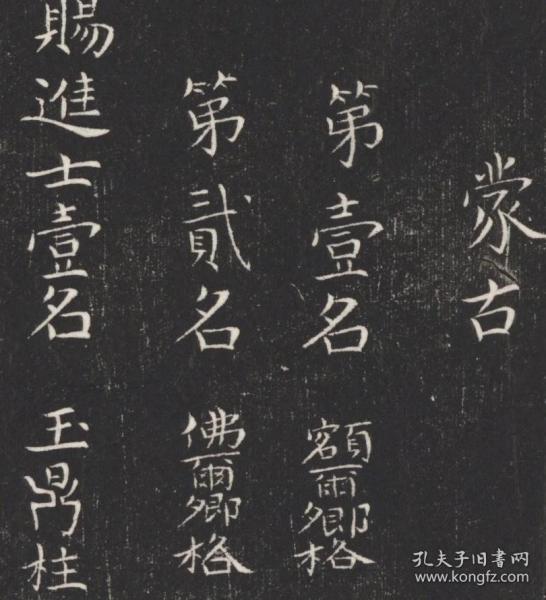 蒙古
第壹名 額爾卿格
第貳名 佛爾卿格
賜進士壹名 玉鼎柱
孔夫子旧书网
www.kongfz.com